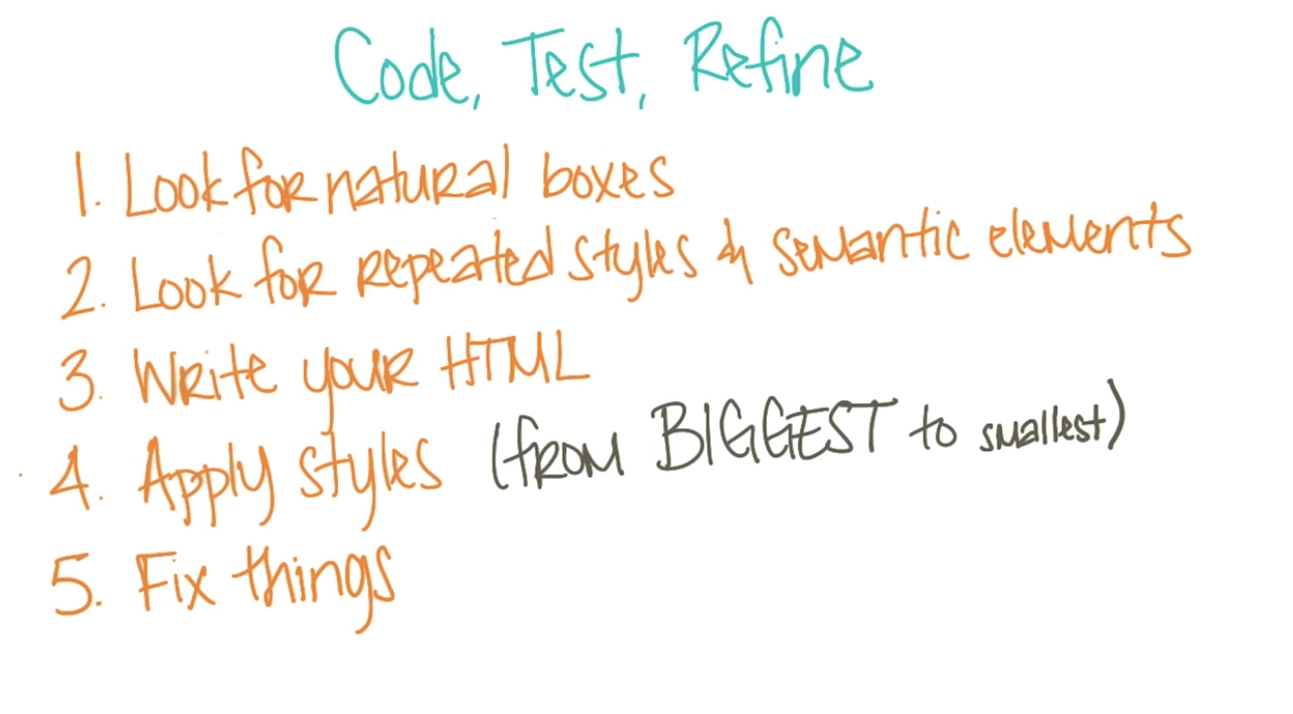 Code, Test, Refine
1. Look for natural boxes
2. Look for repeated styles & semantic elements
3. Write your HTML
4. Apply styles (from BIGGEST to smallest)
5. Fix things